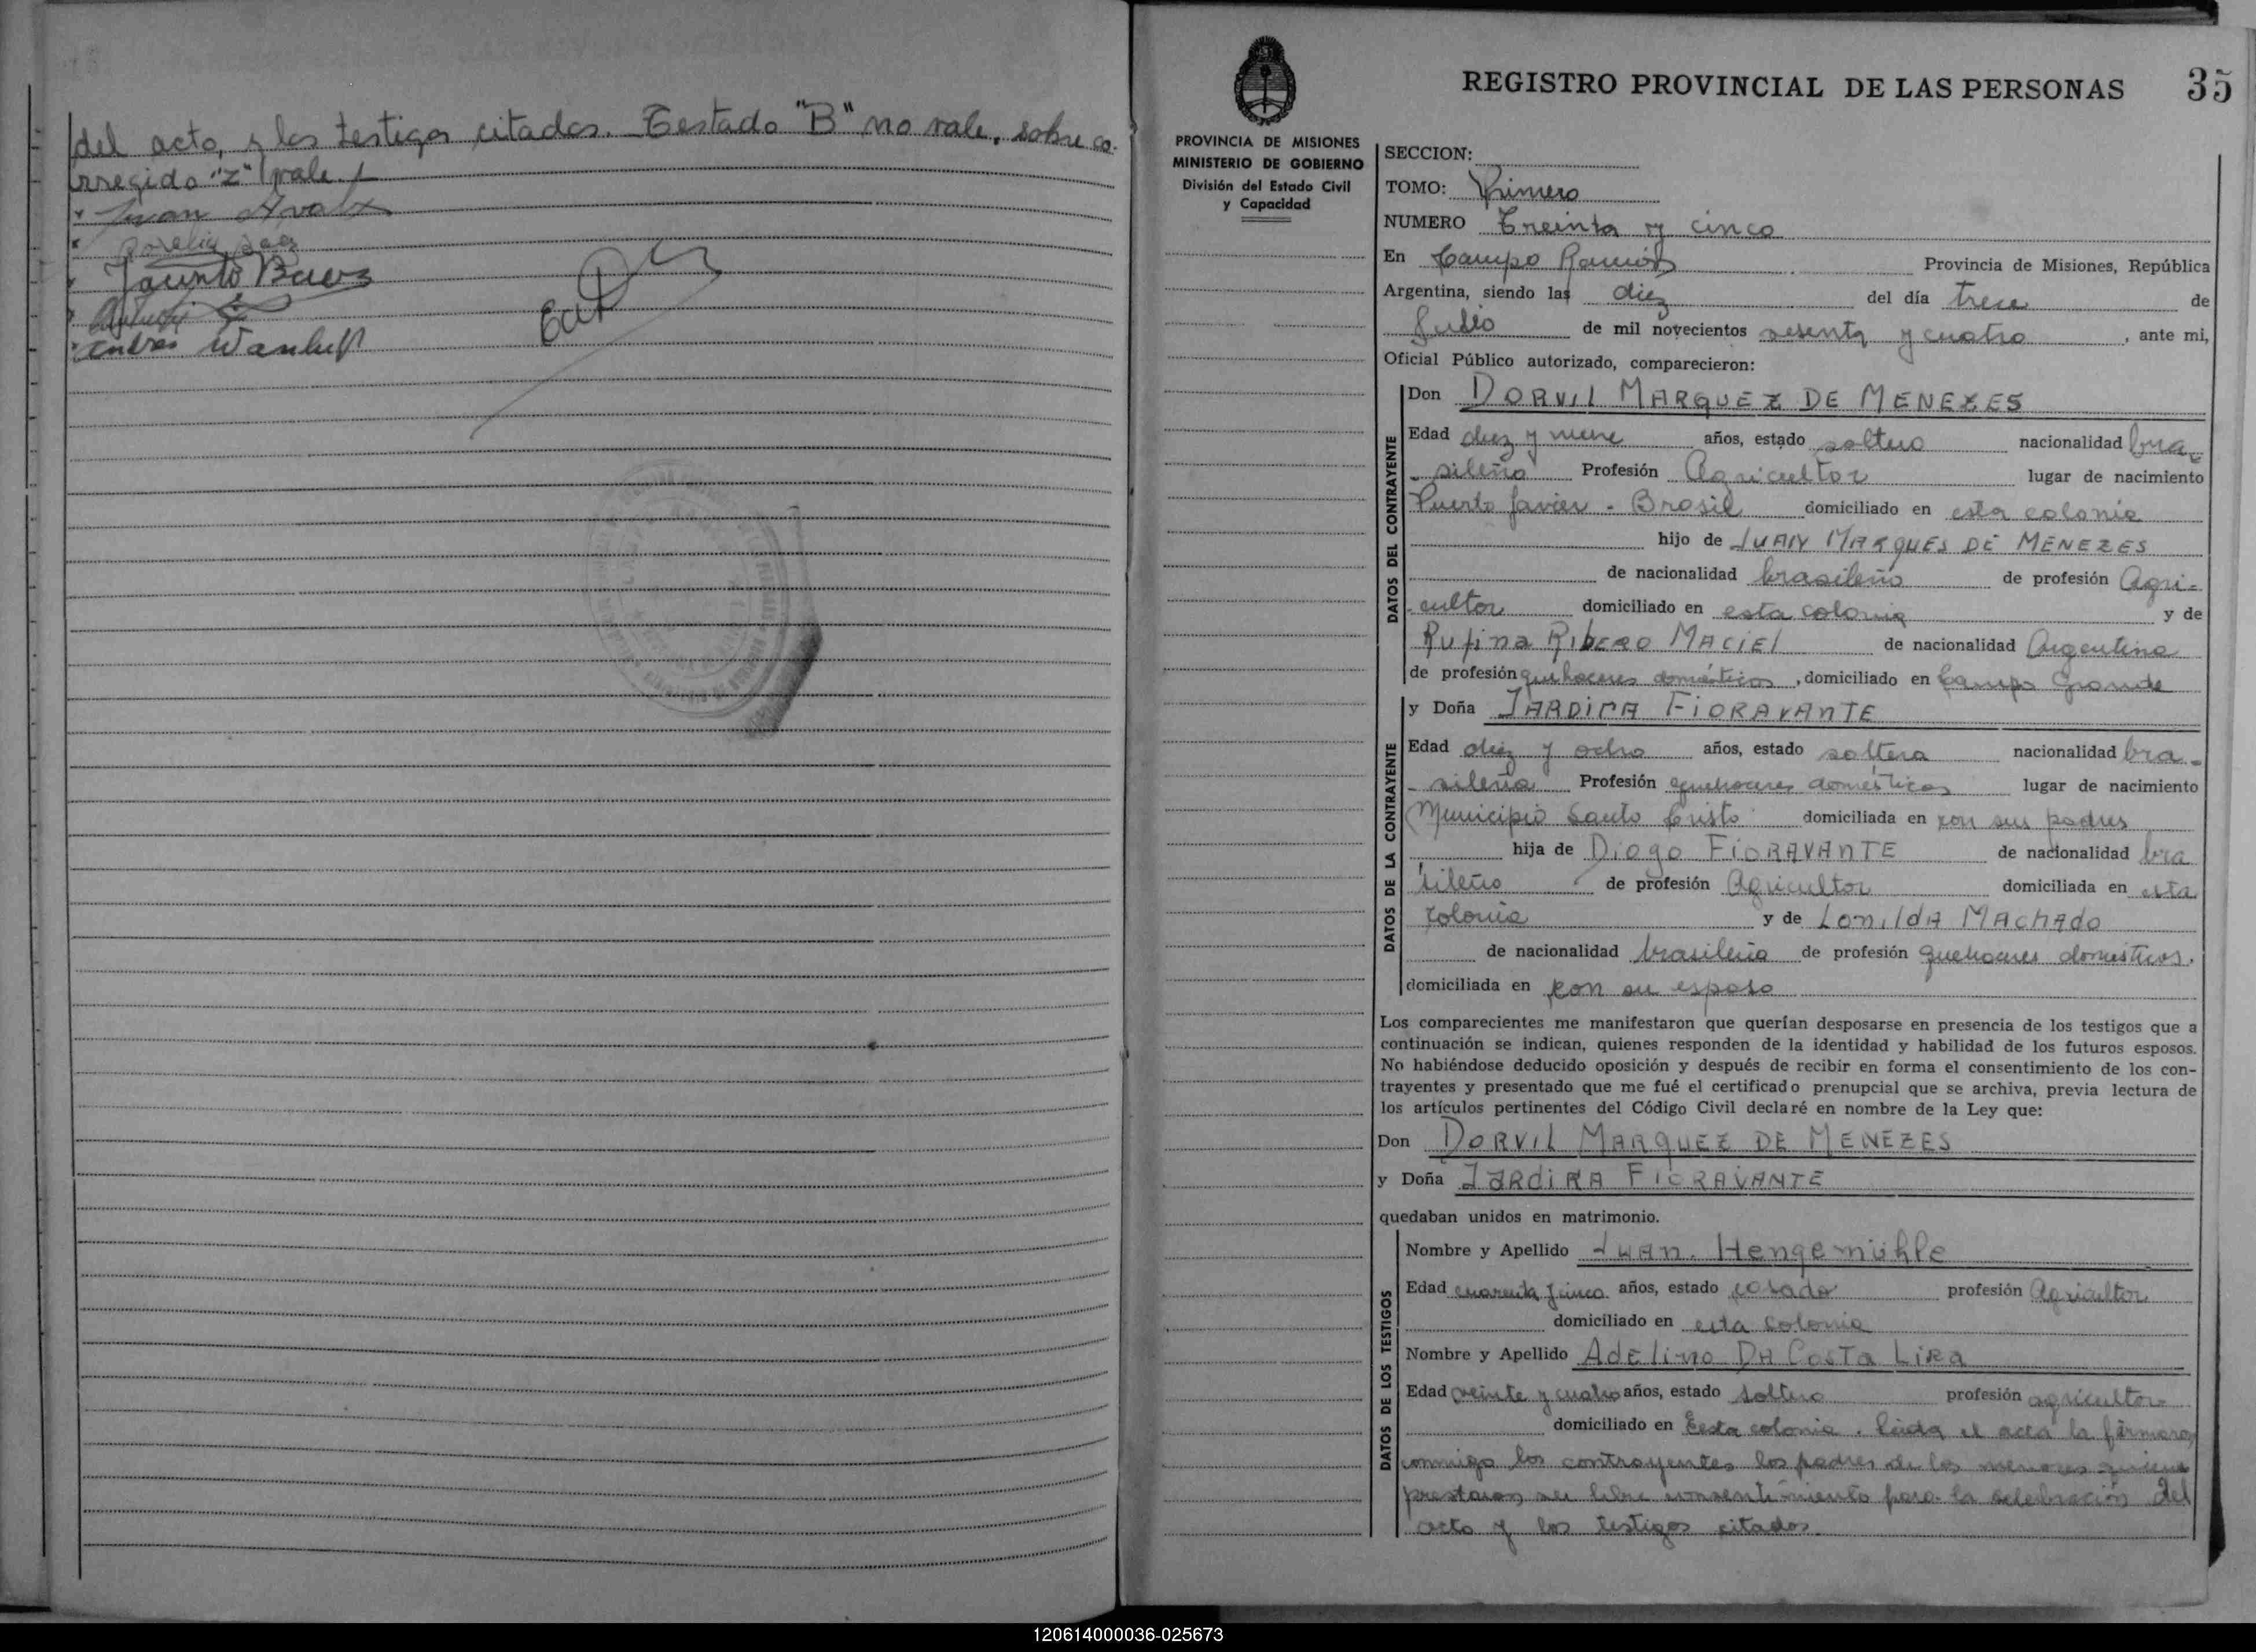 del acto, y los testigos citados. Testado "B" no vale, sobre co-
rregido "z" vale.
Juan
Roselia Baez
Jacinto Baez
Andres
35
REGISTRO PROVINCIAL DE LAS PERSONAS
PROVINCIA DE MISIONES
MINISTERIO DE GOBIERNO
División del Estado Civil
y Capacidad
SECCION:
TOMO: Primero
NUMERO Treinta y cinco
En Campo Ramón Provincia de Misiones, República
Argentina, siendo las diez del día trece de
Julio de mil novecientos sesenta y cuatro, ante mi,
Oficial Público autorizado, comparecieron:
DATOS DEL CONTRAYENTE
Don DORVIL MARQUEZ DE MENEZES
Edad diez y nueve años, estado soltero nacionalidad bra-
sileño Profesión Agricultor lugar de nacimiento
Puerto Javier - Brasil domiciliado en esta colonia
hijo de JUAN MARQUES DE MENEZES
de nacionalidad brasileño de profesión Agri-
cultor domiciliado en esta colonia y de
Rufina RIBERO MACIEL de nacionalidad Argentina
de profesión quehaceres domésticos, domiciliado en Campo Grande
DATOS DE LA CONTRAYENTE
y Doña JARDIRA FIORAVANTE
Edad diez y ocho años, estado soltera nacionalidad bra-
sileña Profesión quehaceres domésticos lugar de nacimiento
Municipio Santo Cristo domiciliada en con sus padres
hija de Diogo FIORAVANTE de nacionalidad bra
sileño de profesión Agricultor domiciliada en esta
colonia y de LonildA MACHAdo
de nacionalidad brasileña de profesión quehaceres domésticos.
domiciliada en con su esposo
Los comparecientes me manifestaron que querían desposarse en presencia de los testigos que a
continuación se indican, quienes responden de la identidad y habilidad de los futuros esposos.
No habiéndose deducido oposición y después de recibir en forma el consentimiento de los con-
trayentes y presentado que me fué el certificado prenupcial que se archiva, previa lectura de
los artículos pertinentes del Código Civil declaré en nombre de la Ley que:
Don DORVIL MARQUEZ DE MENEZES
y Doña JARDIRA FIORAVANTE
quedaban unidos en matrimonio.
DATOS DE LOS TESTIGOS
Nombre y Apellido Juan Hengemühle
Edad cuarenta y cinco años, estado casado profesión Agricultor
domiciliado en esta colonia
Nombre y Apellido Adelino DA Costa Lira
Edad veinte y cuatro años, estado soltero profesión agricultor
domiciliado en Esta colonia. Leida el acta la firmaron
conmigo los contrayentes los padres de los menores quienes
prestaron su libre consentimiento para la celebración del
acto y los testigos citados.
120614000036-025673